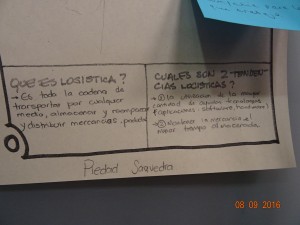 QUE ES LOGISTICA?
→ Es toda la cadena de
transportar por cualquier
medio, almacenar y
y distribuir mercancias,
CUALES SON 2 TENDEN
CIAS LOGISTICAS?
→ ① La utilización de la mayor
cantidad de ayudas tecnologicas
(aplicaciones - softwares,
→ ② Mantener la mercancia el
menor tiempo almacenada.
Piedad Saavedra
08 09 2016